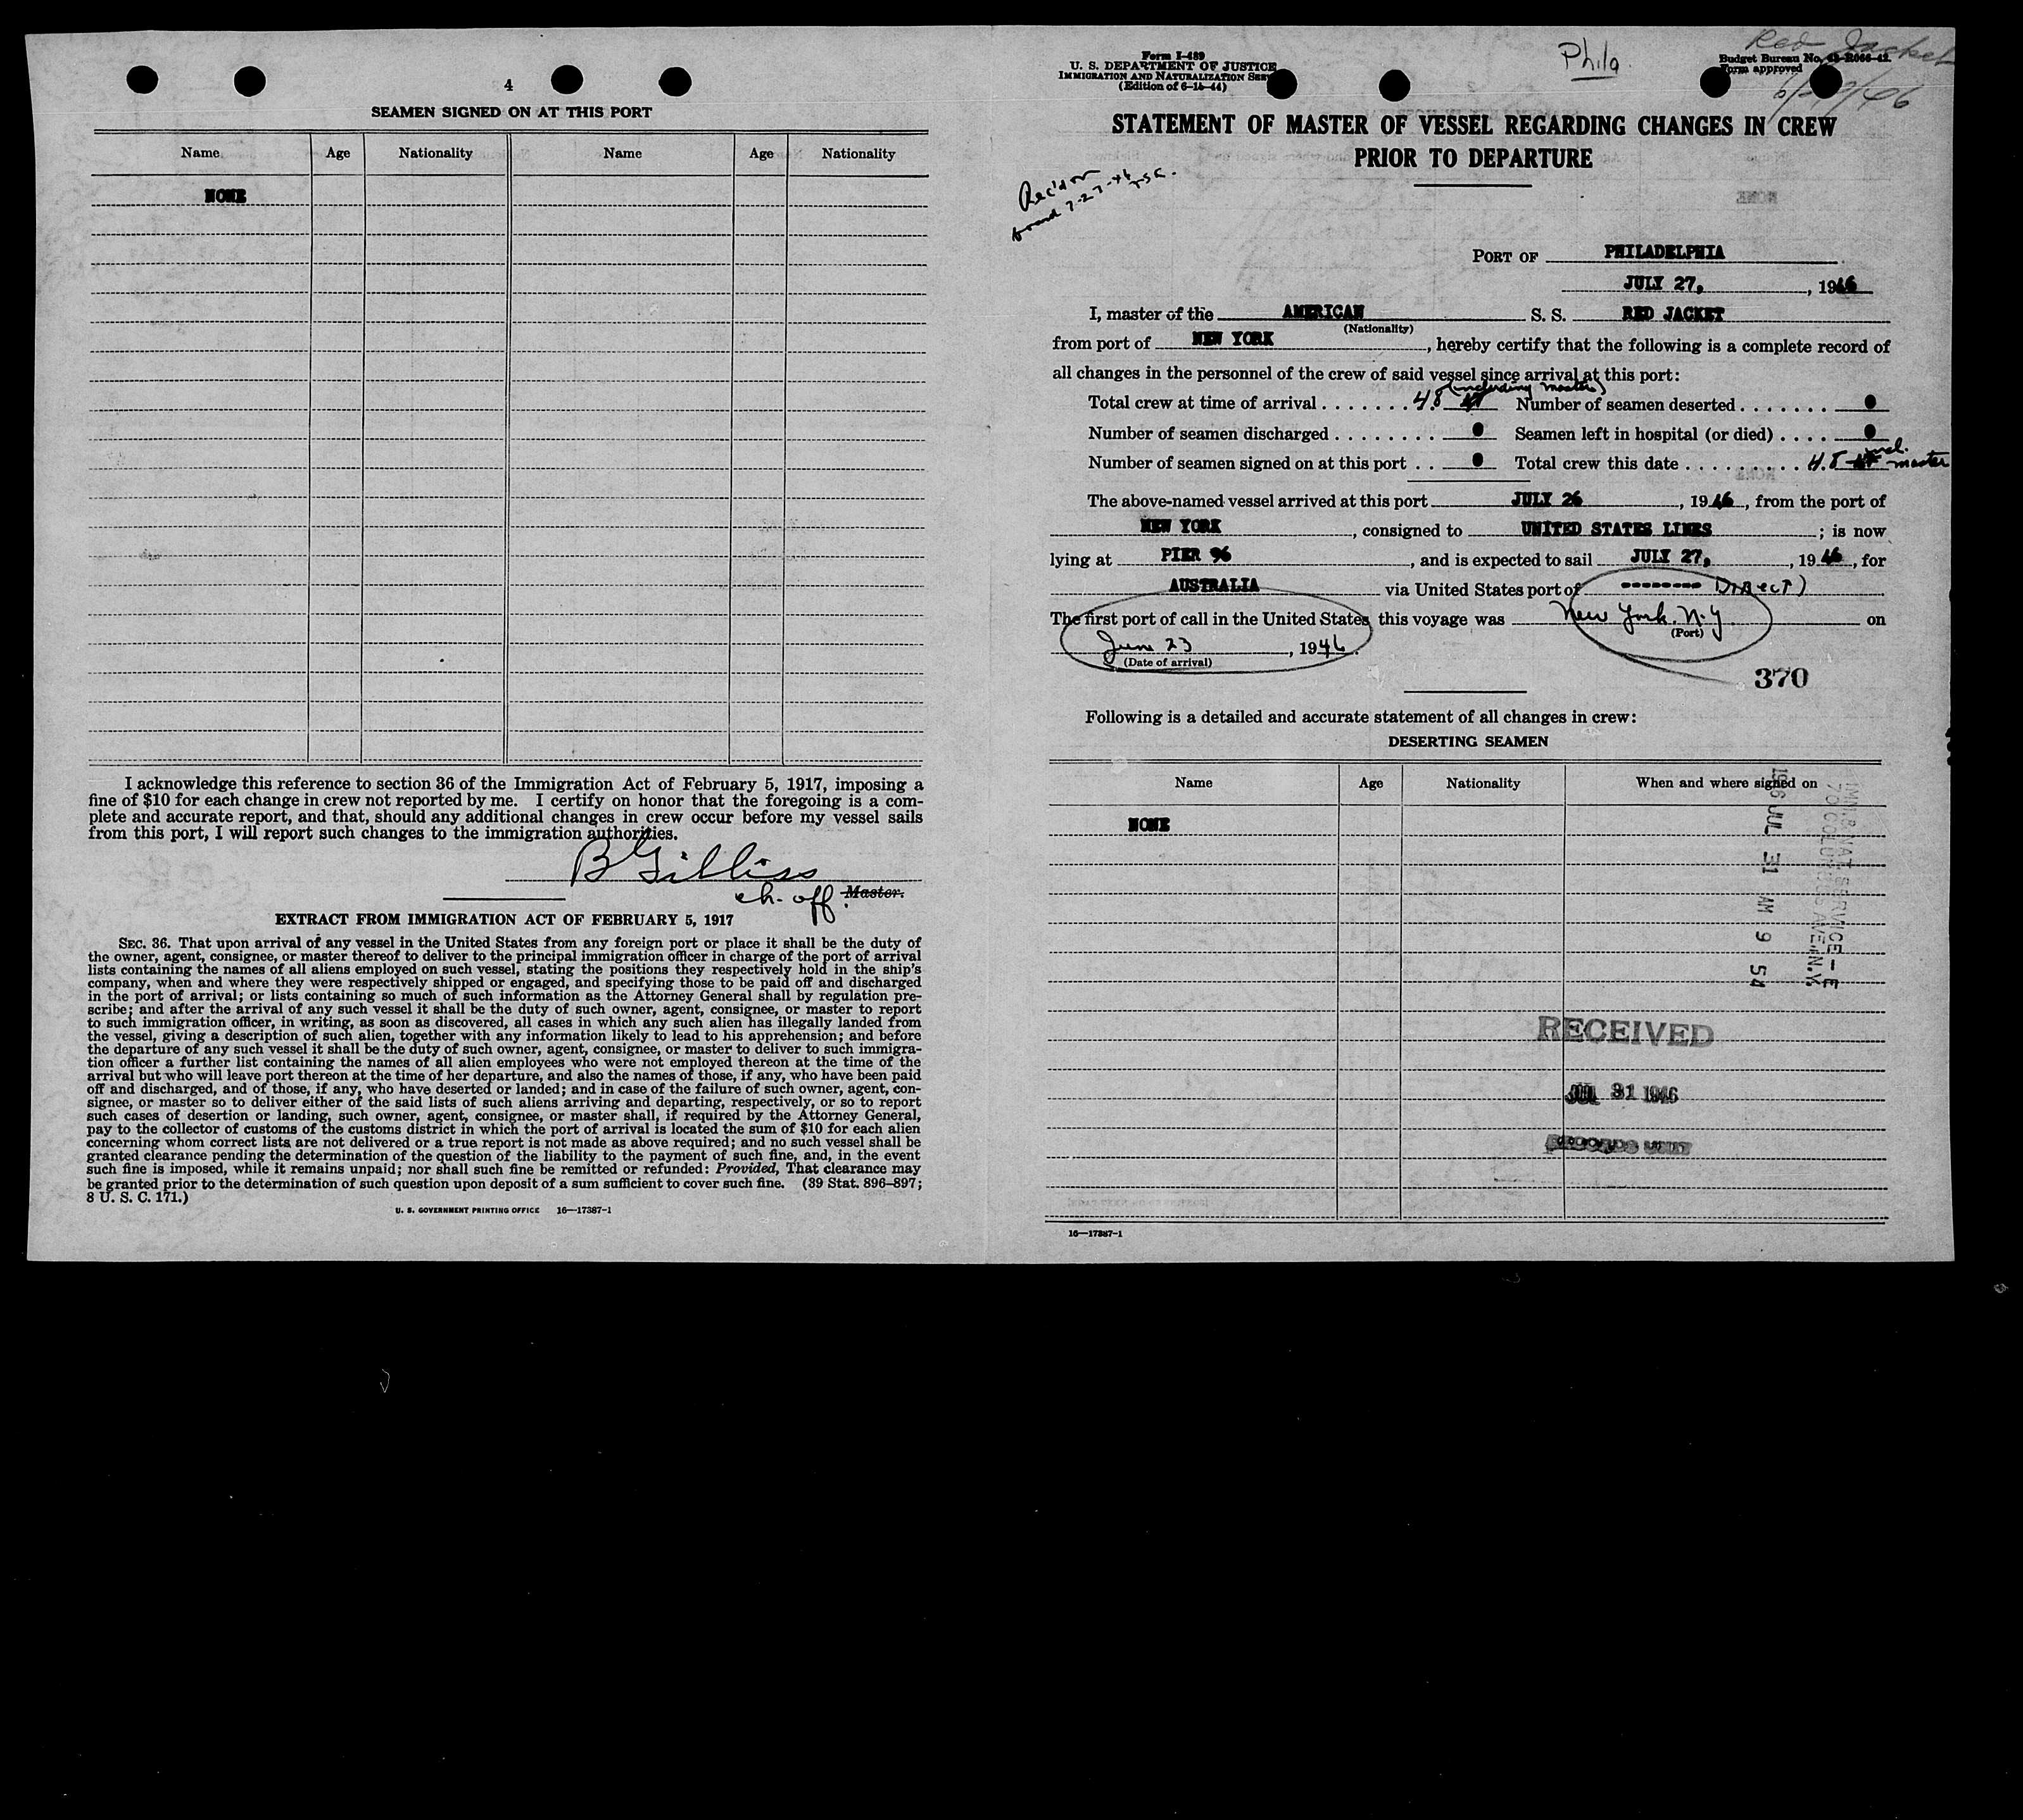 4
SEAMEN SIGNED ON AT THIS PORT
Name Age Nationality Name Age Nationality
NONE
I acknowledge this reference to section 36 of the Immigration Act of February 5, 1917, imposing a
fine of $10 for each change in crew not reported by me. I certify on honor that the foregoing is a com-
plete and accurate report, and that, should any additional changes in crew occur before my vessel sails
from this port, I will report such changes to the immigration authorities.
B Gilliss
ch. off. Master.
EXTRACT FROM IMMIGRATION ACT OF FEBRUARY 5, 1917
SEC. 36. That upon arrival of any vessel in the United States from any foreign port or place it shall be the duty of
the owner, agent, consignee, or master thereof to deliver to the principal immigration officer in charge of the port of arrival
lists containing the names of all aliens employed on such vessel, stating the positions they respectively hold in the ship's
company, when and where they were respectively shipped or engaged, and specifying those to be paid off and discharged
in the port of arrival; or lists containing so much of such information as the Attorney General shall by regulation pre-
scribe; and after the arrival of any such vessel it shall be the duty of such owner, agent, consignee, or master to report
to such immigration officer, in writing, as soon as discovered, all cases in which any such alien has illegally landed from
the vessel, giving a description of such alien, together with any information likely to lead to his apprehension; and before
the departure of any such vessel it shall be the duty of such owner, agent, consignee, or master to deliver to such immigra-
tion officer a further list containing the names of all alien employees who were not employed thereon at the time of the
arrival but who will leave port thereon at the time of her departure, and also the names of those, if any, who have been paid
off and discharged, and of those, if any, who have deserted or landed; and in case of the failure of such owner, agent, con-
signee, or master so to deliver either of the said lists of such aliens arriving and departing, respectively, or so to report
such cases of desertion or landing, such owner, agent, consignee, or master shall, if required by the Attorney General,
pay to the collector of customs of the customs district in which the port of arrival is located the sum of $10 for each alien
concerning whom correct lists are not delivered or a true report is not made as above required; and no such vessel shall be
granted clearance pending the determination of the question of the liability to the payment of such fine, and, in the event
such fine is imposed, while it remains unpaid; nor shall such fine be remitted or refunded: Provided, That clearance may
be granted prior to the determination of such question upon deposit of a sum sufficient to cover such fine. (39 Stat. 896–897;
8 U. S. C. 171.)
U. S. GOVERNMENT PRINTING OFFICE 16—17387-1
Form I-489
U. S. DEPARTMENT OF JUSTICE
IMMIGRATION AND NATURALIZATION
(Edition of 6-15-44)
Phila.
Red Jacket
Budget Bureau No.
Form approved
STATEMENT OF MASTER OF VESSEL REGARDING CHANGES IN CREW
PRIOR TO DEPARTURE
Rec'd on
board 7-27-46
PORT OF PHILADELPHIA
JULY 27, 1946
I, master of the AMERICAN S. S. RED JACKET
(Nationality)
from port of NEW YORK, hereby certify that the following is a complete record of
all changes in the personnel of the crew of said vessel since arrival at this port:
(including master)
Total crew at time of arrival 48 Number of seamen deserted 0
Number of seamen discharged 0 Seamen left in hospital (or died) 0
Number of seamen signed on at this port 0 Total crew this date 48 incl. master
The above-named vessel arrived at this port JULY 26, 1946, from the port of
NEW YORK, consigned to UNITED STATES LINES; is now
lying at PIER 96, and is expected to sail JULY 27, 1946, for
AUSTRALIA via United States port of -------- Direct)
The first port of call in the United States this voyage was New York. N.Y. on
(Port)
June 23, 1946.
(Date of arrival)
370
Following is a detailed and accurate statement of all changes in crew:
DESERTING SEAMEN
Name Age Nationality When and where signed on
NONE
IMM. & NAT. SERVICE – E
70 COLUMBUS AVE., N.Y.
1946 JUL 31 AM 9 54
RECEIVED
JUL 31 1946
RECORDS UNIT
16—17387-1